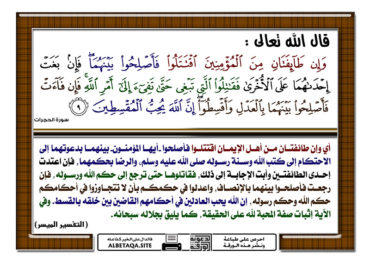 قال الله تعالى :
وَإِن طَآئِفَتَانِ مِنَ ٱلْمُؤْمِنِينَ ٱقْتَتَلُوا۟ فَأَصْلِحُوا۟ بَيْنَهُمَا ۖ فَإِنۢ بَغَتْ
إِحْدَىٰهُمَا عَلَى ٱلْأُخْرَىٰ فَقَٰتِلُوا۟ ٱلَّتِى تَبْغِى حَتَّىٰ تَفِىٓءَ إِلَىٰٓ أَمْرِ ٱللَّهِ ۚ فَإِن فَآءَتْ
فَأَصْلِحُوا۟ بَيْنَهُمَا بِٱلْعَدْلِ وَأَقْسِطُوٓا۟ ۖ إِنَّ ٱللَّهَ يُحِبُّ ٱلْمُقْسِطِينَ ٩
سورة الحجرات
أي وإن طائفتـان مـن أهـل الإيمـان اقتتلـوا فأصلحوا ـ أيهـا المؤمنـون ـ بينهمـا بدعوتهما إلى
الاحتكام إلى كتب الله وسنة رسوله صلى الله عليه وسلم، والرضا بحكمهما، فإن اعتدت
إحـدى الطائفتـين وأبت الإجابـة إلى ذلك، فقاتلوهـا حتى ترجع إلى حكم الله ورسوله، فإن
رجعـت فأصلحـوا بينهما بالإنصـاف، واعدلوا في حكمكـم بأن لا تتجـاوزوا في أحكامكم
حكم الله وحكم رسوله، إن الله يحب العادلين في أحكامهم القاضين بين خلقه بالقسط. وفي
الآية إثبات صفة المحبة لله على الحقيقة، كما يليق بجلاله سبحانه.
(التفسير الميسر)
احرص على طباعة
ونشر هذه الورقة
ALBETAQA.SITE